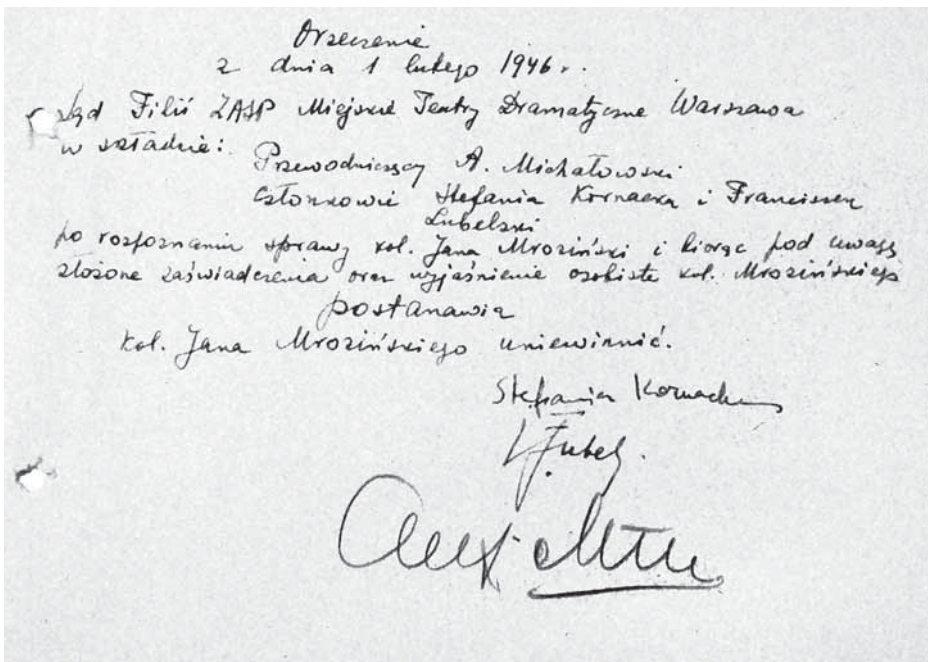 Orzeczenie
z dnia 1 lutego 1946 r.
Sąd Filii ZASP Miejskie Teatry Dramatyczne Warszawa
w składzie:
Przewodniczący A. Michałowski
członkowie Stefania Kornacka i Franciszek
Lubelski
po rozpoznaniu sprawy kol. Jana Mroziński i biorąc pod uwagę
złożone zaświadczenia oraz wyjaśnienie osobiste kol. Mrozińskiego
postanawia
kol. Jana Mrozińskiego uniewinnić.
Stefania Kornacka